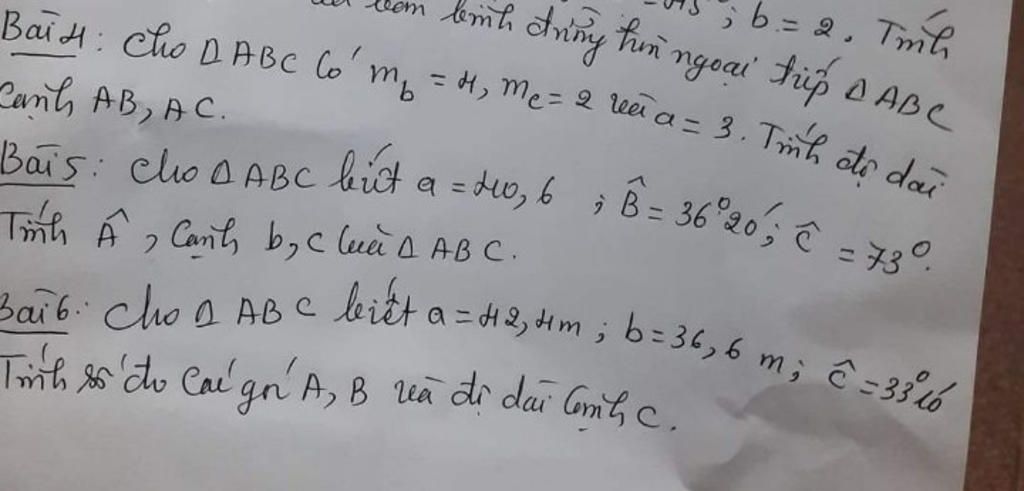 b = 2. Tính
kính đường tròn ngoại tiếp Δ ABC
Bài 4: Cho Δ ABC có m_b = 4, m_c = 2 và a = 3. Tính độ dài
cạnh AB, AC.
Bài 5: Cho Δ ABC biết a = 40,6 ; B̂ = 36°20'; Ĉ = 73°.
Tính Â, cạnh b, c của Δ ABC.
Bài 6: Cho Δ ABC biết a = 42,4m ; b = 36,6 m; Ĉ = 33°10'
Tính số đo các góc A, B và độ dài cạnh C.